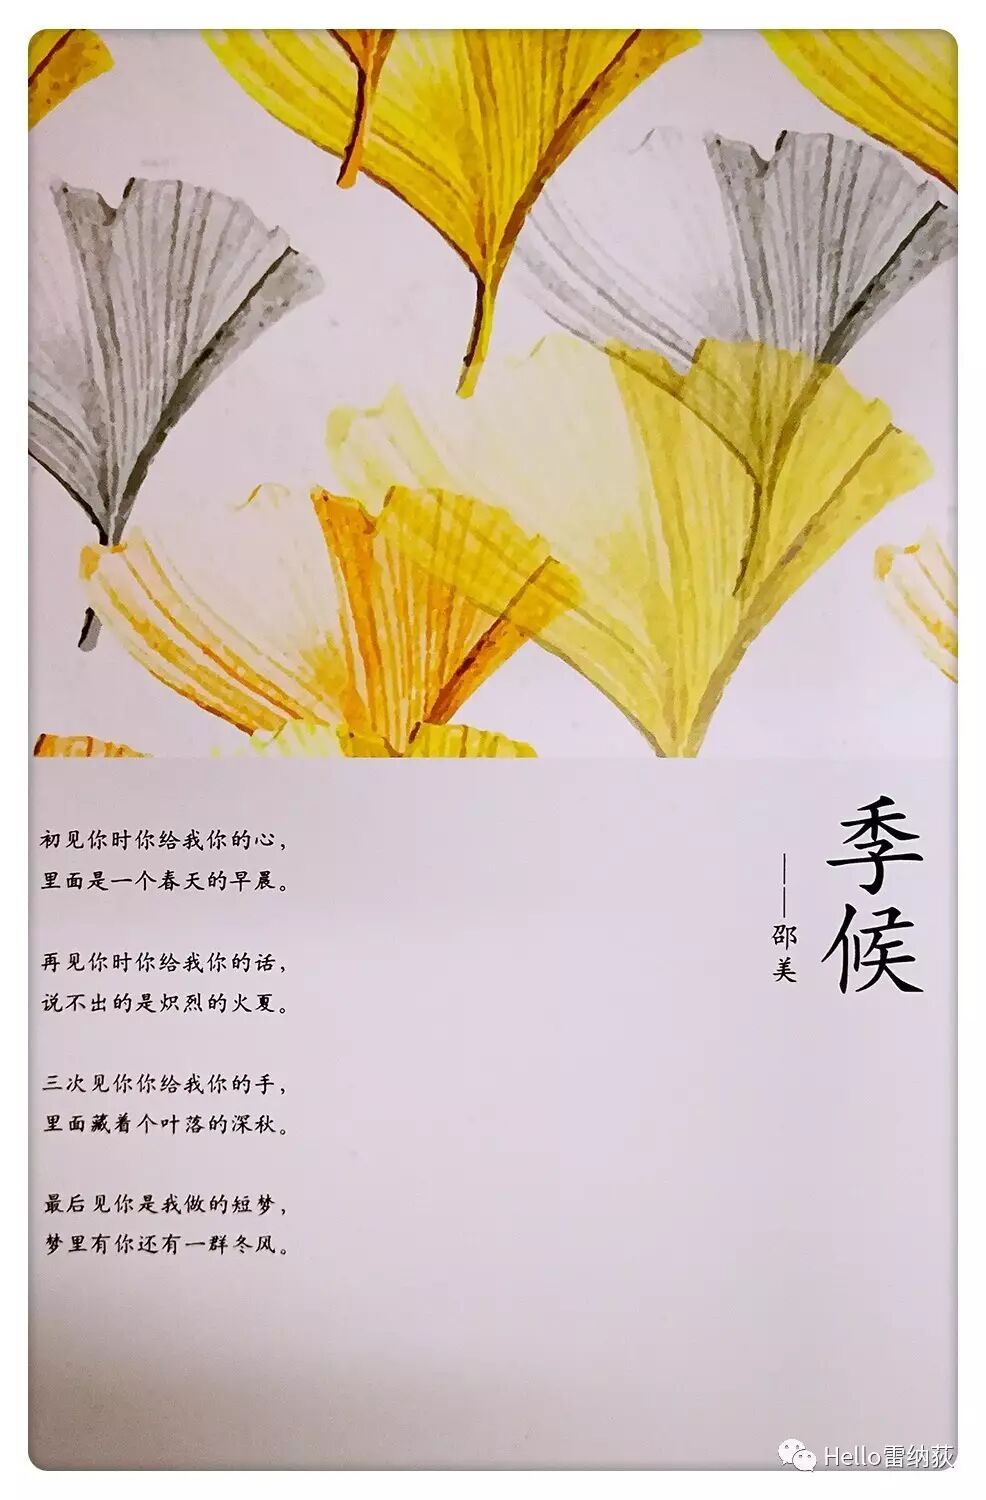 季候
——邵美
初见你时你给我你的心，
里面是一个春天的早晨。
再见你时你给我你的话，
说不出的是炽烈的火夏。
三次见你你给我你的手，
里面藏着个叶落的深秋。
最后见你是我做的短梦，
梦里有你还有一群冬风。
Hello雷纳荻